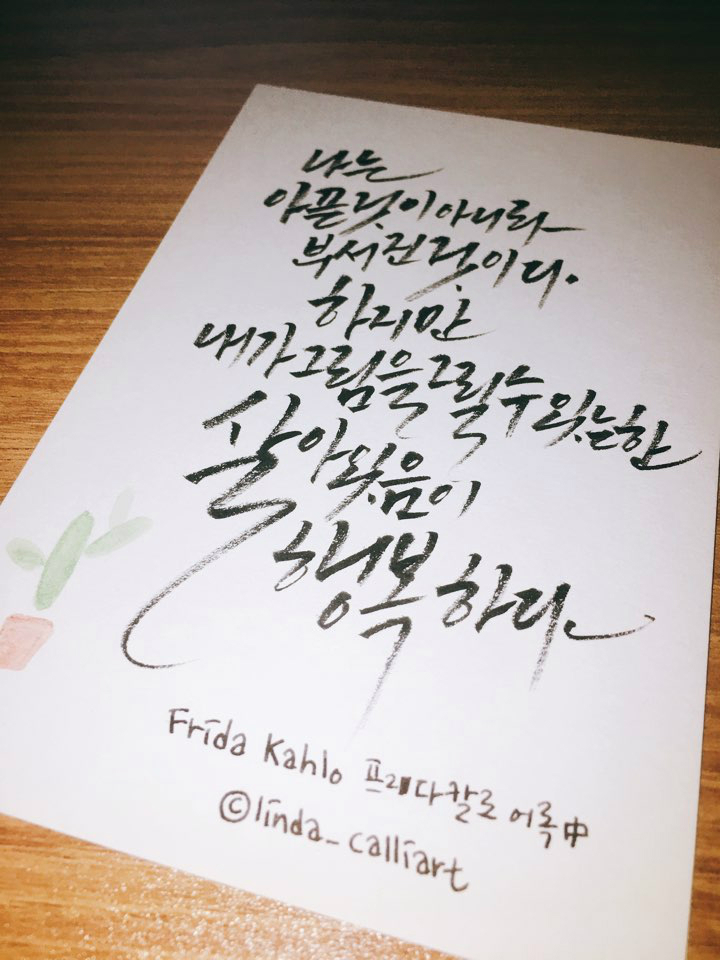 나는
아픈 것이 아니라
부서진 것이다.
하지만
내가 그림을 그릴 수 있는 한
살아있음이
행복하다.
Frida Kahlo 프레다칼로 어록 中
©linda_calliart